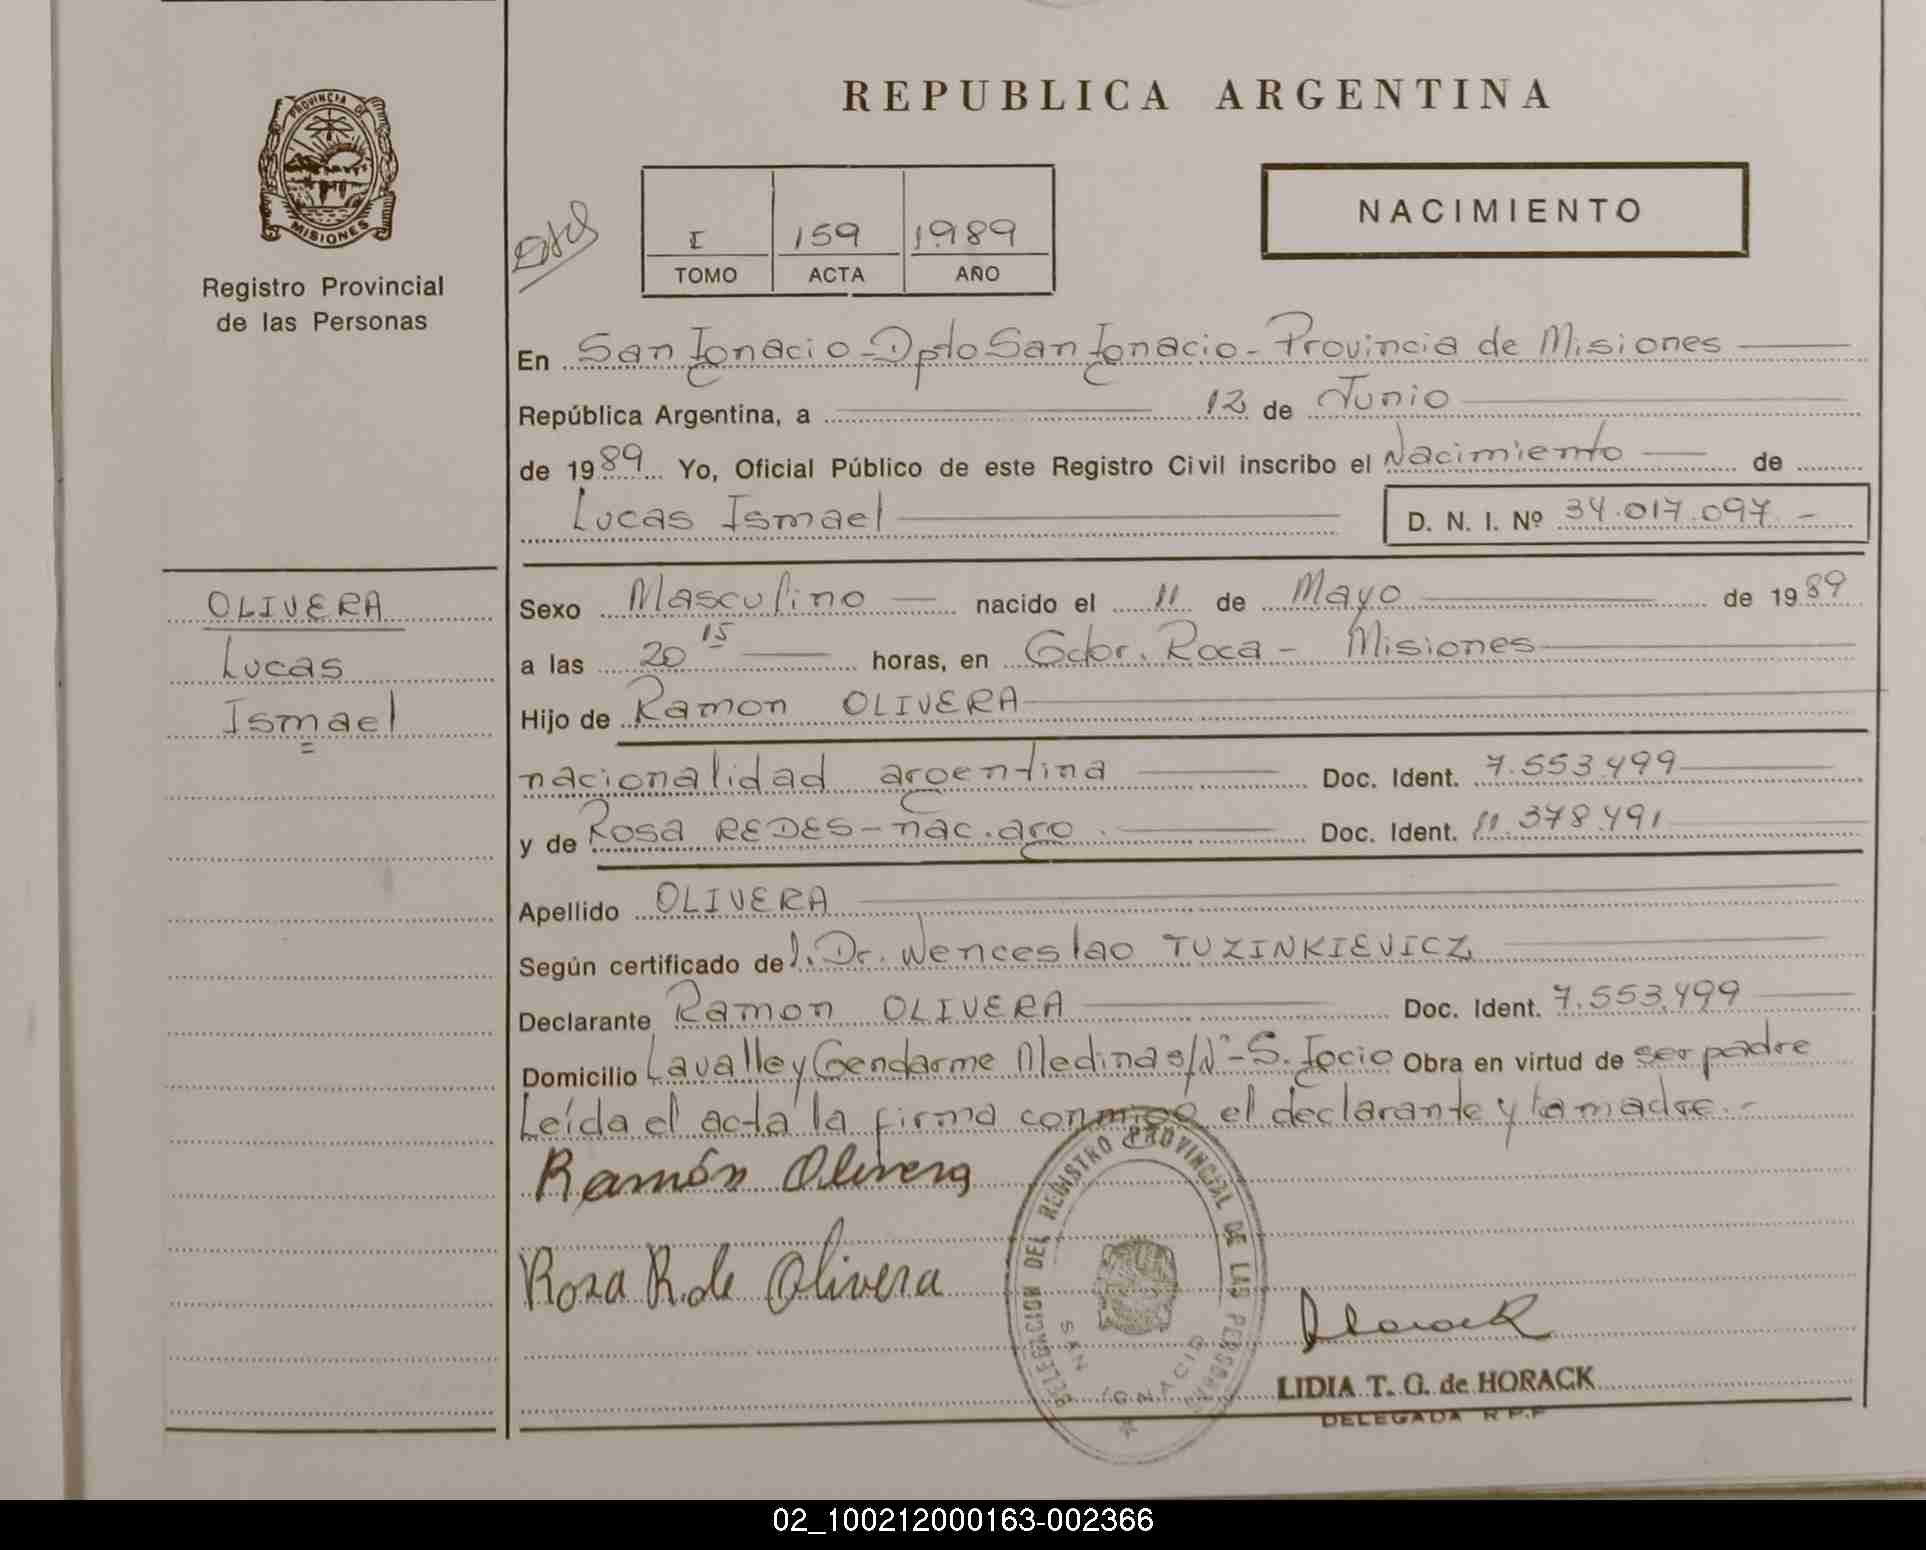 PROVINCIA DE
MISIONES
Registro Provincial
de las Personas
OLIVERA
Lucas
Ismael
REPUBLICA ARGENTINA
I 159 1989
TOMO ACTA AÑO
NACIMIENTO
En San Ignacio - Dpto San Ignacio - Provincia de Misiones
República Argentina, a 12 de Junio
de 1989 Yo, Oficial Público de este Registro Civil inscribo el Nacimiento de
Lucas Ismael D. N. I. Nº 34.017.097 -
Sexo Masculino nacido el 11 de Mayo de 1989
a las 20 15 horas, en Gdor. Roca - Misiones
Hijo de Ramon OLIVERA
nacionalidad argentina Doc. Ident. 7.553.499
y de Rosa REDES - nac. arg. Doc. Ident. 11.378.491
Apellido OLIVERA
Según certificado del. Dr. Wenceslao TUZINKIEVICZ
Declarante Ramon OLIVERA Doc. Ident. 7.553.499
Domicilio Lavalle y Gendarme Medina s/Nº - S. Igcio Obra en virtud de ser padre
Leída el acta la firma conmigo el declarante y la madre. -
Ramón Olivera
Rosa R. de Olivera
DELEGACION DEL REGISTRO PROVINCIAL DE LAS PERSONAS
SAN IGNACIO
LIDIA T. G. de HORACK
DELEGADA R.P.P
02_100212000163-002366